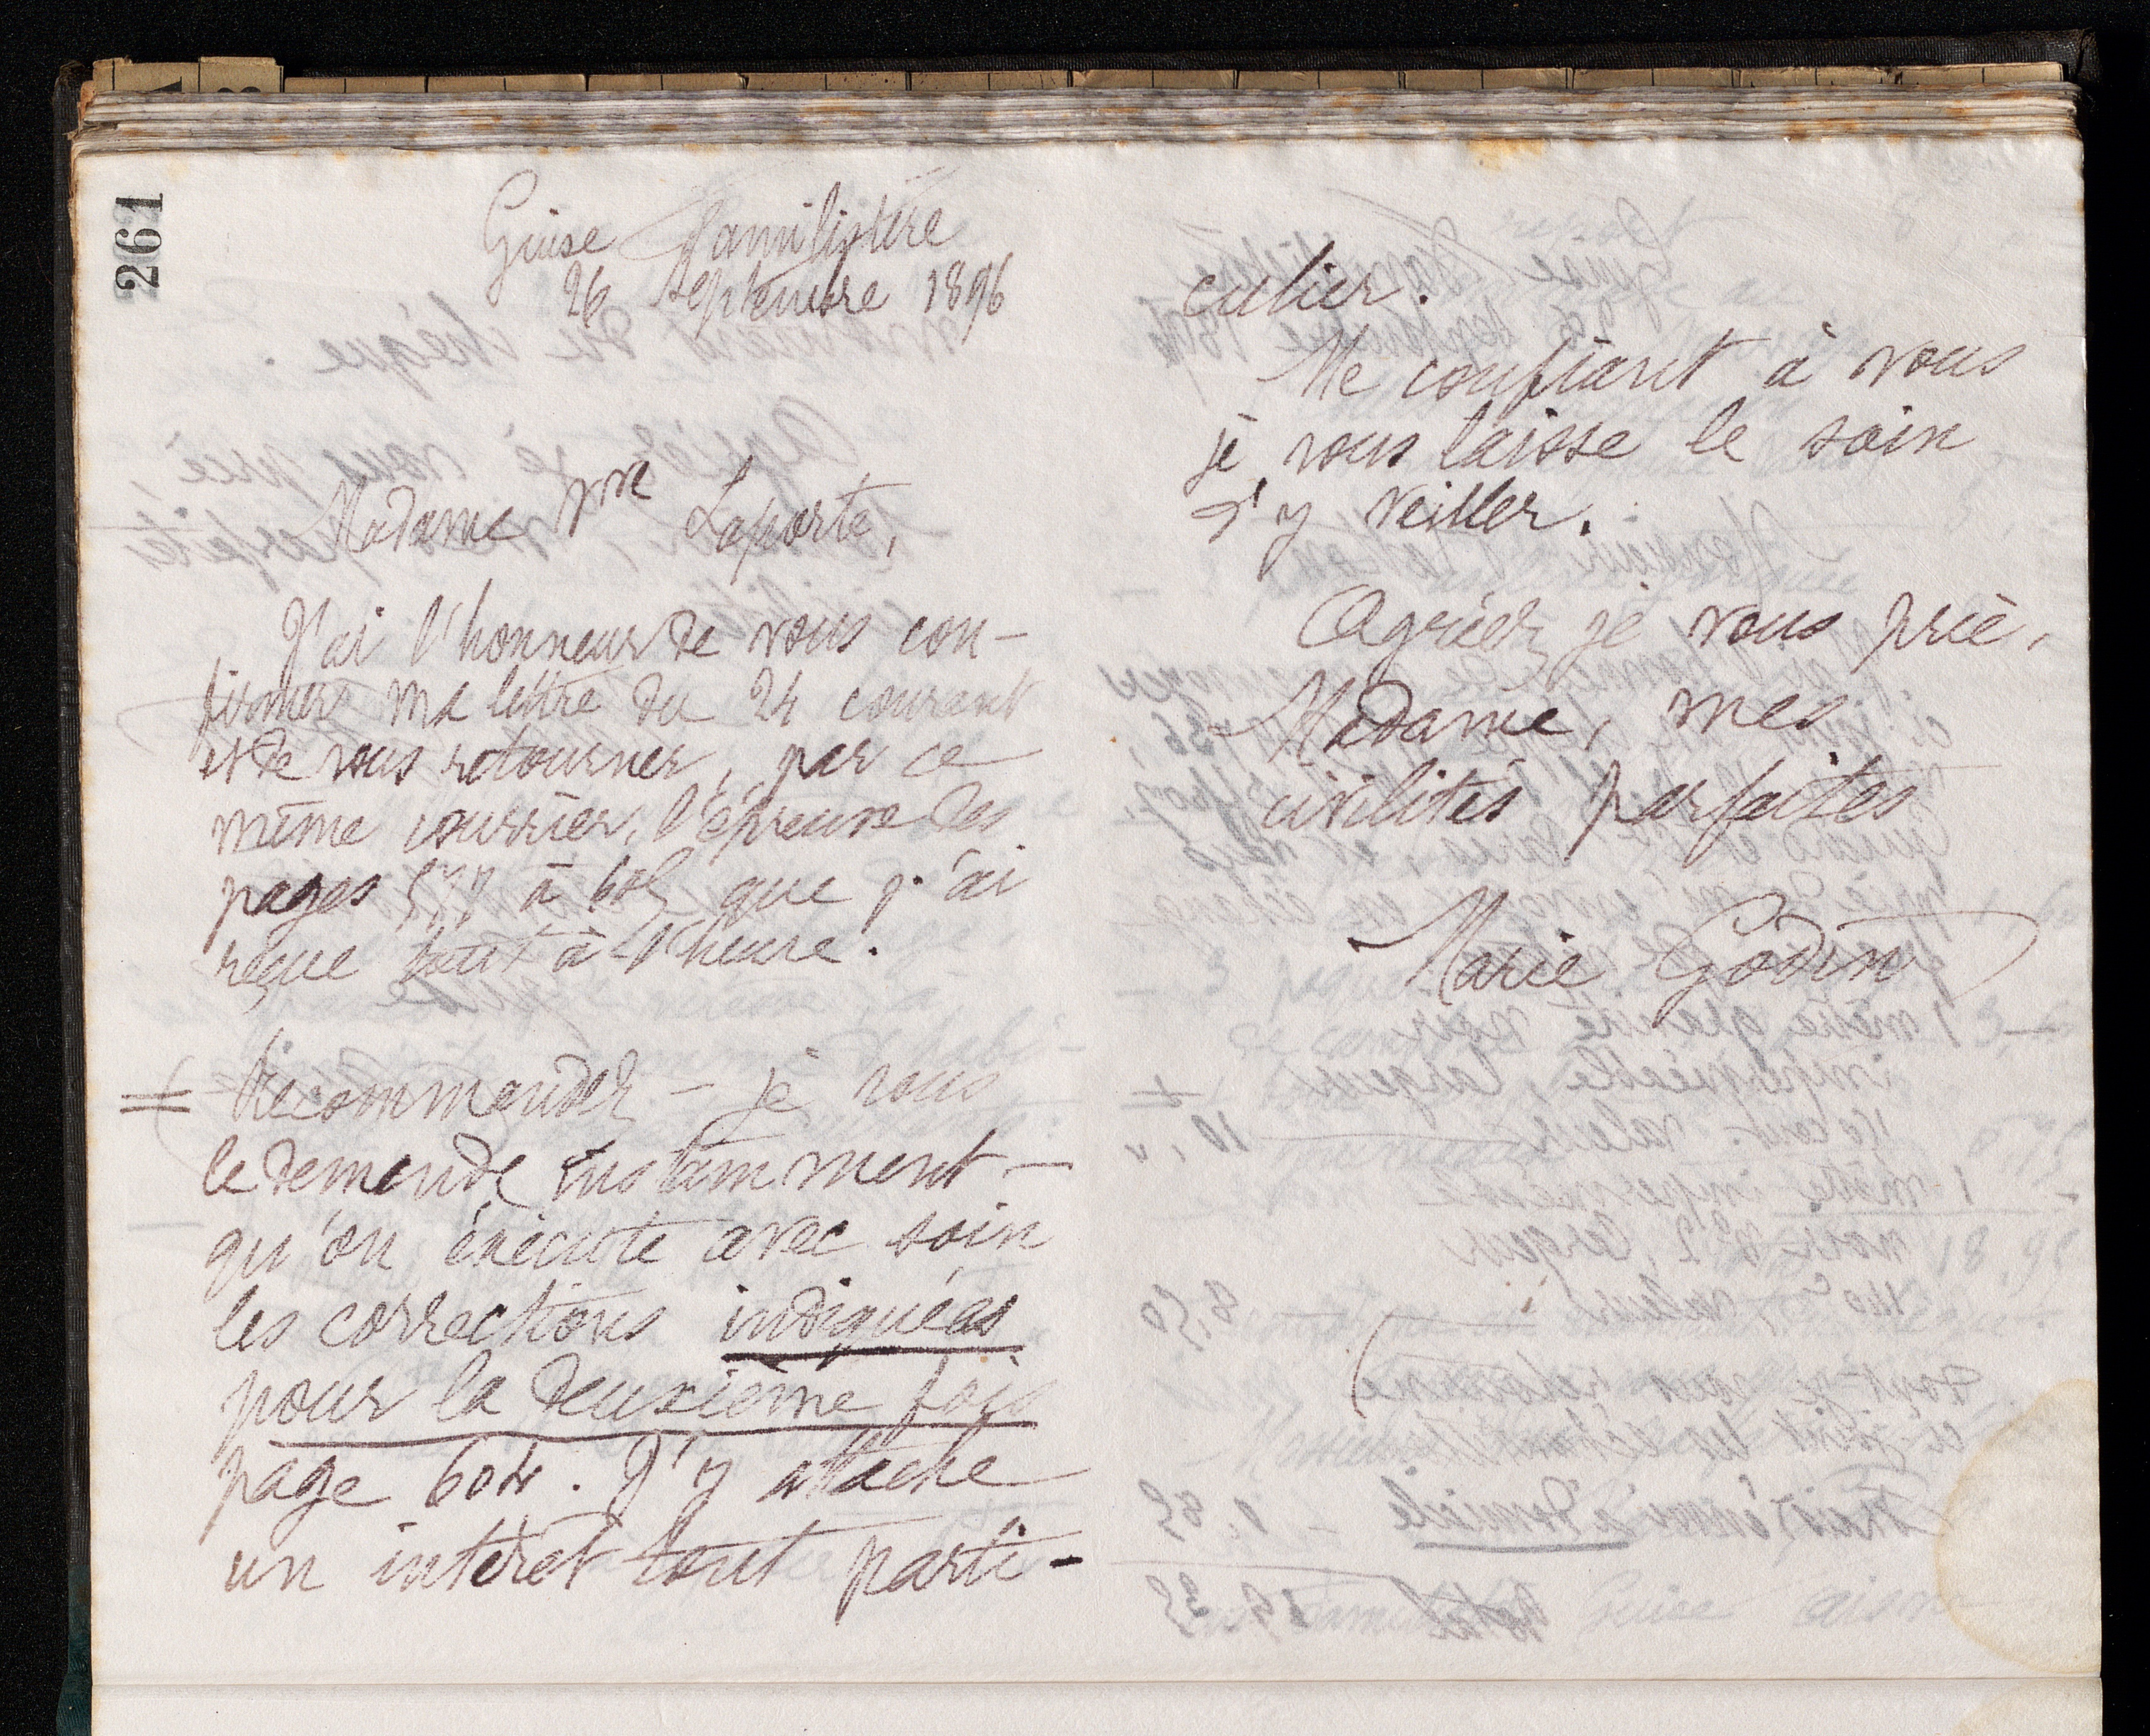 261
Guise Familistère
26 septembre 1896
Madame Vve Laporte,
J'ai l'honneur de vous con-
firmer ma lettre du 24 courant
et de vous retourner, par ce
même courrier, l'épreuve des
pages 577 à 605 que j'ai
reçue tout à l'heure.
Recommandez - je vous
le demande instamment -
qu'on exécute avec soin
les corrections indiquées
pour la deuxième fois
page 604. J'y attache
un intérêt tout parti-
culier.
Me confiant à vous
je vous laisse le soin
d'y veiller.
Agréez je vous prie,
Madame, mes
civilités parfaites
Marie Godin